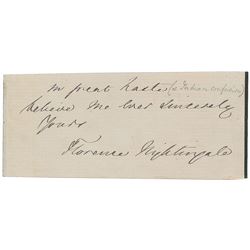 In great haste (& Indian confusion)
believe me ever sincerely
yours
Florence Nightingale